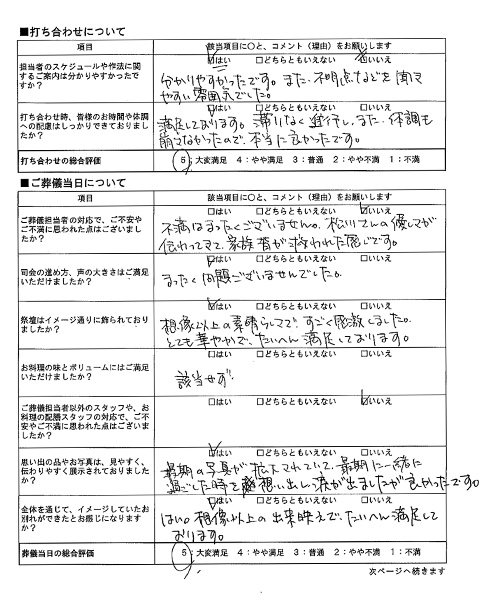 ■打ち合わせについて
項目 該当項目に○と、コメント(理由)をお願いします
担当者のスケジュールや作法に関するご案内は分かりやすかったですか?
□はい □どちらともいえない □いいえ
分かりやすかったです。また、不明点などを聞き
やすい雰囲気でした。
打ち合わせ時、皆様のお時間や体調への配慮はしっかりできておりましたか?
□はい □どちらともいえない □いいえ
満足しております。滞りなく進行し、また、体調も
崩さなかったので、本当に良かったです。
打ち合わせの総合評価 5:大変満足 4:やや満足 3:普通 2:やや不満 1:不満
■ご葬儀当日について
項目 該当項目に○と、コメント(理由)をお願いします
ご葬儀担当者の対応で、ご不安やご不満に思われた点はございましたか?
□はい □どちらともいえない □いいえ
不満はまったくございません。松川さんの優しさが
伝わってきて、家族皆が救われた感じです。
司会の進め方、声の大きさはご満足いただけましたか?
□はい □どちらともいえない □いいえ
まったく問題ございませんでした。
祭壇はイメージ通りに飾られておりましたか?
□はい □どちらともいえない □いいえ
想像以上の素晴らしさで、すごく感激しました。
とても華やかで、たいへん満足しております。
お料理の味とボリュームにはご満足いただけましたか?
□はい □どちらともいえない □いいえ
該当せず
ご葬儀担当者以外のスタッフや、お料理の配膳スタッフの対応で、ご不安やご不満に思われた点はございましたか?
□はい □どちらともいえない □いいえ
思い出の品やお写真は、見やすく、伝わりやすく展示されておりましたか?
□はい □どちらともいえない □いいえ
最期の写真が拡大されていて、最期に一緒に
過ごした時を想い出し、涙が出ましたが良かったです。
全体を通じて、イメージしていたお別れができたとお感じになりますか?
□はい □どちらともいえない □いいえ
はい。想像以上の出来映えで、たいへん満足して
おります。
葬儀当日の総合評価 5:大変満足 4:やや満足 3:普通 2:やや不満 1:不満
次ページへ続きます